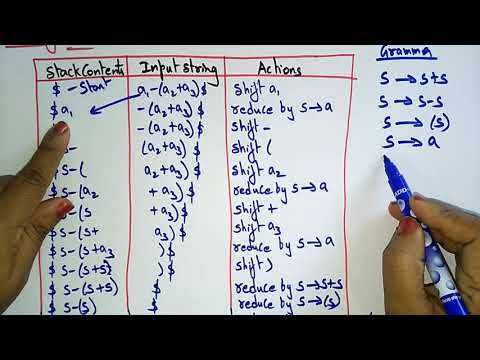 Gramma
Stack Contents Input string Actions
$ - Start a₁-(a₂+a₃)$ shift a₁
$ a₁ -(a₂+a₃)$ reduce by S→a
-(a₂+a₃)$ shift -
S- (a₂+a₃)$ shift (
$ S-( a₂+a₃)$ shift a₂
$ S-(a₂ +a₃)$ reduce by S→a
$ S-(S +a₃)$ shift +
$ S-(S+ a₃)$ shift a₃
$ S-(S+a₃ )$ reduce by S→a
$ S-(S+S )$ shift )
$ S-(S+S) $ reduce by S→S+S
$ S-(S) $ reduce by S→(S)
S→S+S
S→S-S
S→(S)
S→a